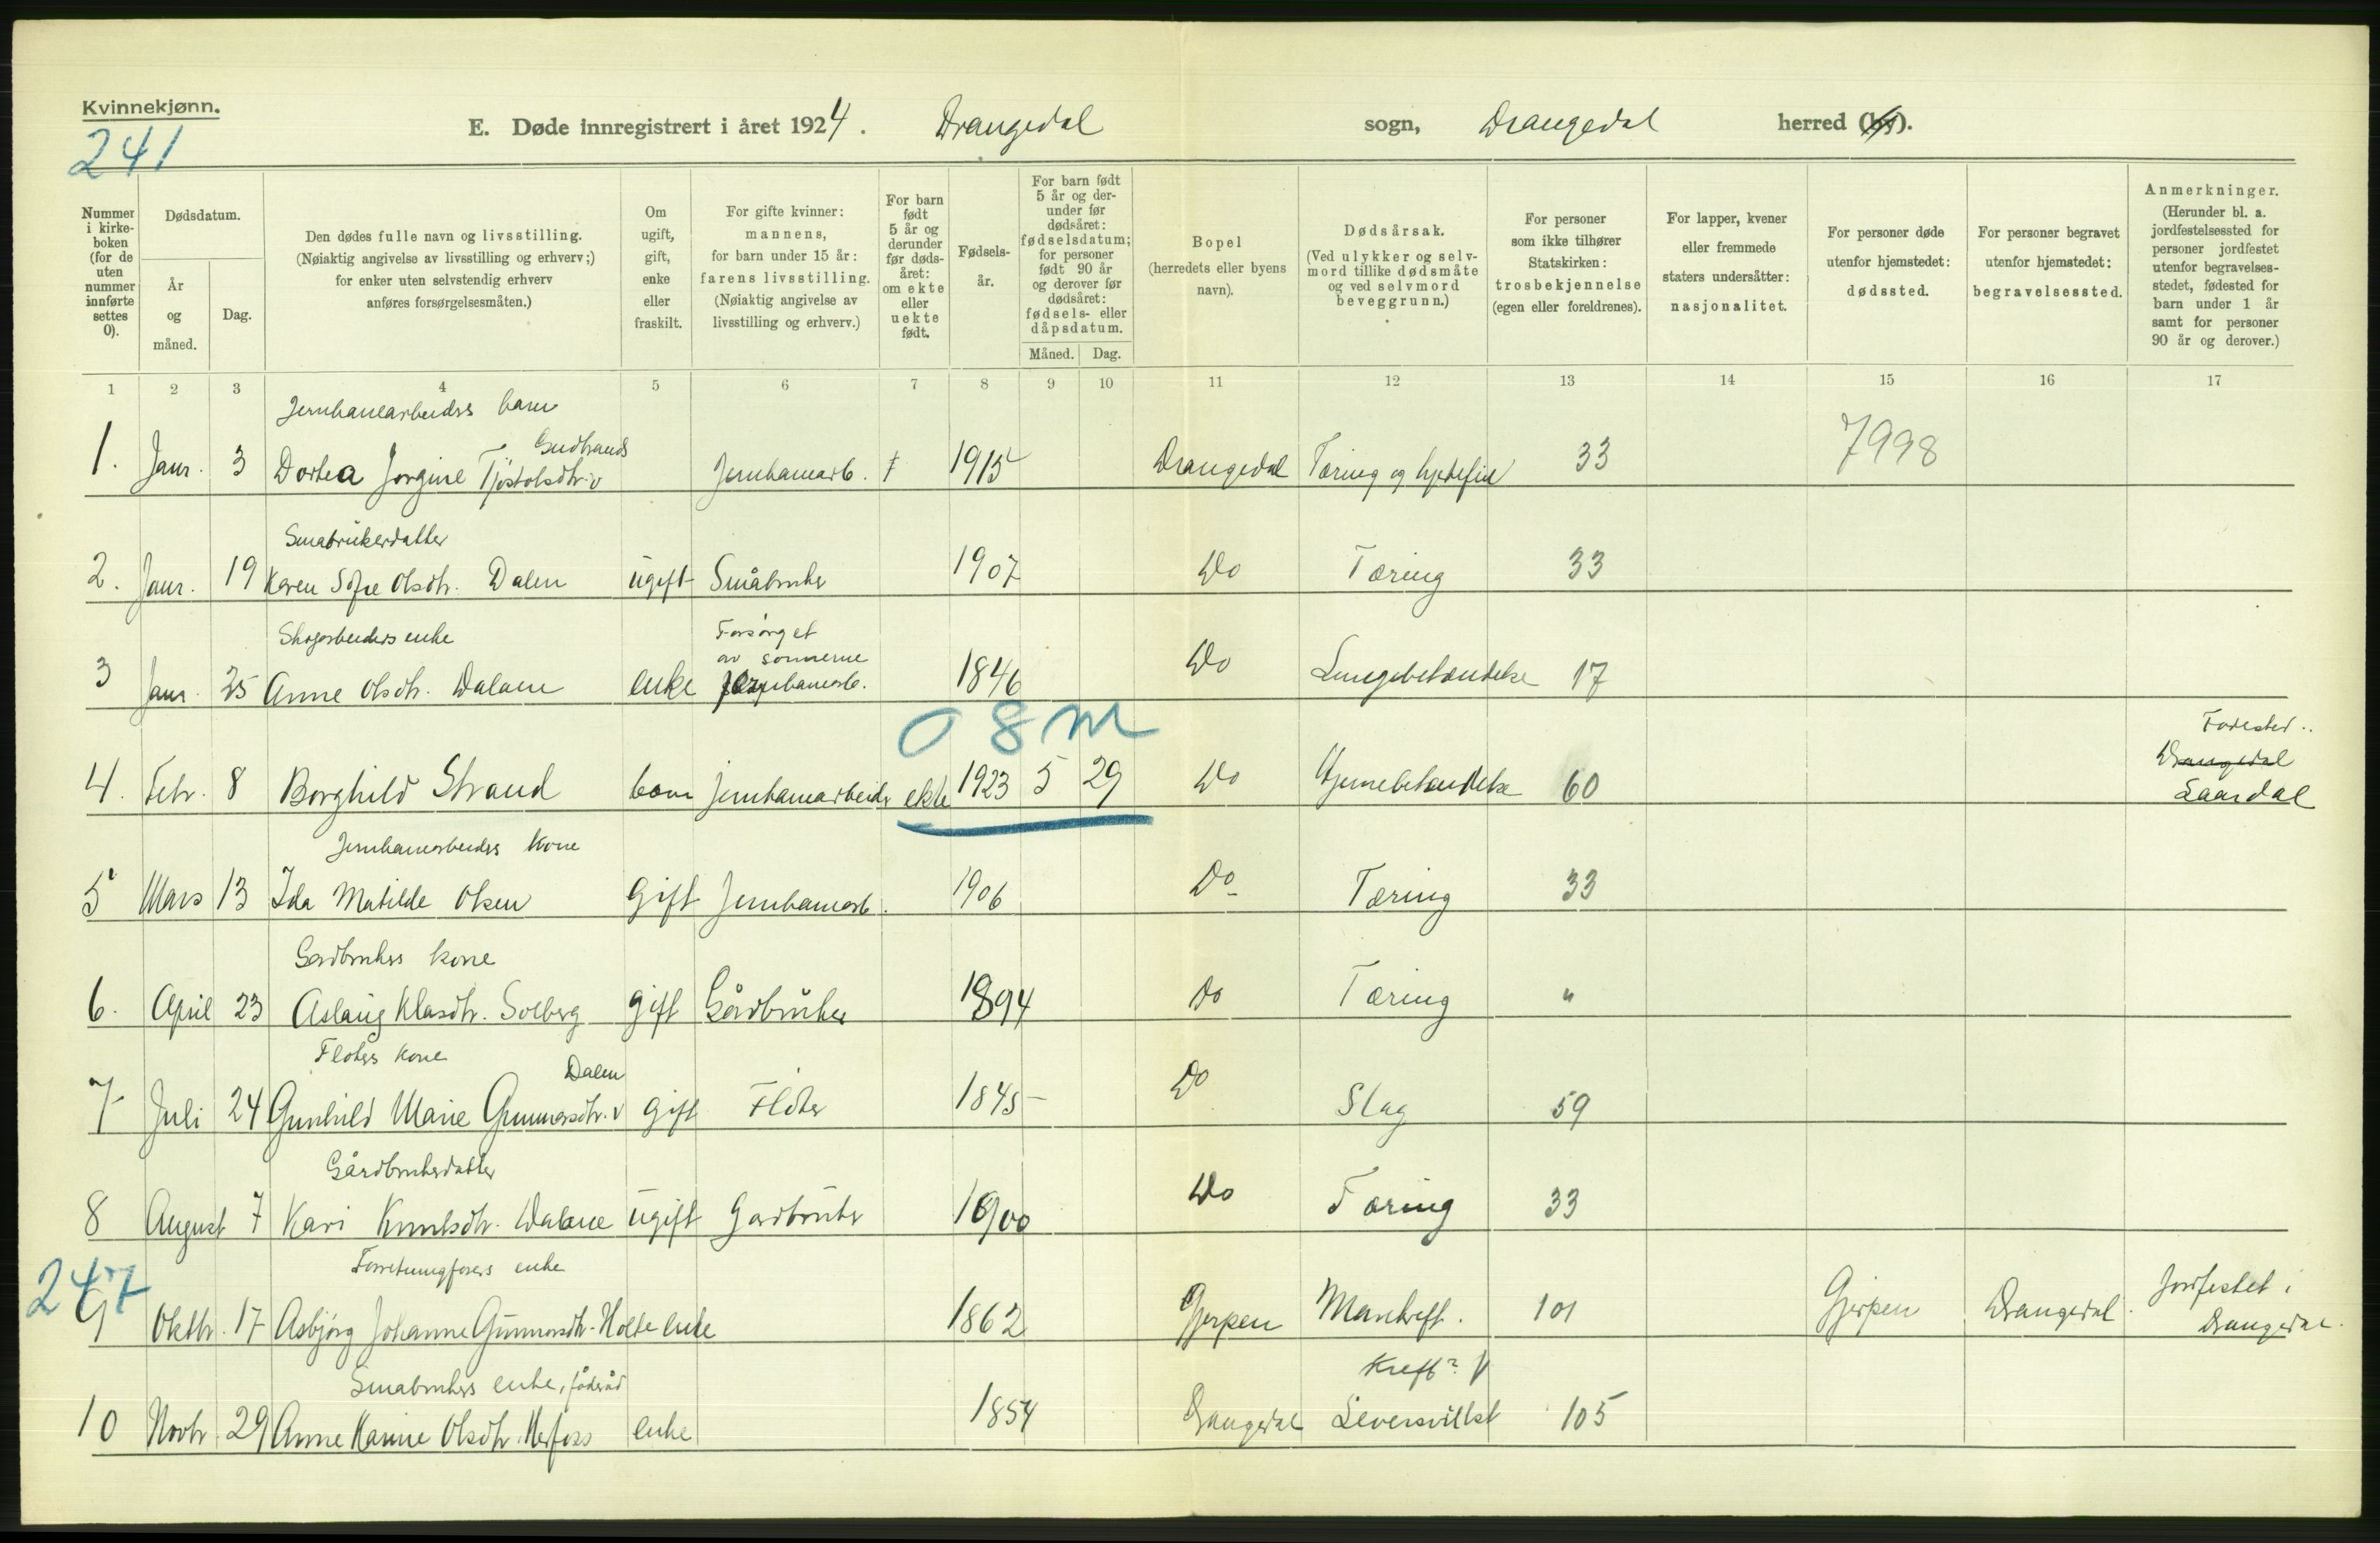 Kvinnekjønn.
241
E. Døde innregistrert i året 1924. Drangedal sogn, Drangedal herred (by).
Nummer i kirkeboken (for de uten nummer innførte settes 0).
Dødsdatum.
År og måned.
Dag.
Den dødes fulle navn og livsstilling.
(Nøiaktig angivelse av livsstilling og erhverv;)
for enker uten selvstendig erhverv
anføres forsørgelsesmåten.)
Om ugift, gift, enke eller fraskilt.
For gifte kvinner: mannens, for barn under 15 år: farens livsstilling. (Nøiaktig angivelse av livsstilling og erhverv.)
For barn født 5 år og derunder før dødsåret: om ekte eller uekte født.
Fødselsår.
For barn født 5 år og derunder før dødsåret: fødselsdatum; for personer født 90 år og derover før dødsåret: fødsels- eller dåpsdatum.
Måned. Dag.
Bopel (herredets eller byens navn).
Dødsårsak. (Ved ulykker og selvmord tillike dødsmåte og ved selvmord beveggrunn.)
For personer som ikke tilhører Statskirken: trosbekjennelse (egen eller foreldrenes).
For lapper, kvener eller fremmede staters undersåtter: nasjonalitet.
For personer døde utenfor hjemstedet: dødssted.
For personer begravet utenfor hjemstedet: begravelsessted.
Anmerkninger. (Herunder bl. a. jordfestelsessted for personer jordfestet utenfor begravelsesstedet, fødested for barn under 1 år samt for personer 90 år og derover.)
1 2 3 4 5 6 7 8 9 10 11 12 13 14 15 16 17
Jernbanearbeiders barn
Gudbrands
1. Janr. 3 Dortea Jorgine Tjøstolsdtr. Jernbanearb. 1915 Drangedal Tæring og hjertefeil 33 7998
Småbrukerdatter
2. Janr. 19 Karen Sofie Olsdtr. Dalen ugift Småbruker 1907 Do Tæring 33
Skogarbeiders enke Forsørget
av sønnerne
3 Janr. 25 Anne Olsdtr. Dalane enke Jernbanearb. 1846 Do Lungebetændelse 17
08M
Fødested
Drangedal
4. Febr. 8 Borghild Strand barn jernbanearbeider ekte 1923 5 29 Do Hjernebetændelse 60 Laardal
Jernbanearbeiders kone
5 Mars 13 Ida Matilde Olsen gift Jernbanearb. 1906 Do Tæring 33
Gardbrukers kone
6. April 23 Aslaug Klasdtr. Solberg gift Gårdbruker 1894 Do Tæring "
Fløters kone
Dalen
7 Juli 24 Gunhild Marie Gunnarsdtr. gift Fløter 1845 Do Slag 59
Gårdbrukerdatter
8 August 7 Kari Knutsdtr. Dalane ugift Gardbruker 1900 Do Tæring 33
247
Forretningsførers enke
9 Oktbr. 17 Asbjørg Johanne Gunnarsdtr. Holte enke 1862 Gjerpen Mavekreft. 101 Gjerpen Drangedal. Jordfestet i
Drangedal.
Småbrukers enke, føderåd Kreft?
10 Novbr. 29 Anne Karine Olsdtr. Herfoss enke 1854 Drangedal Leversvulst 105